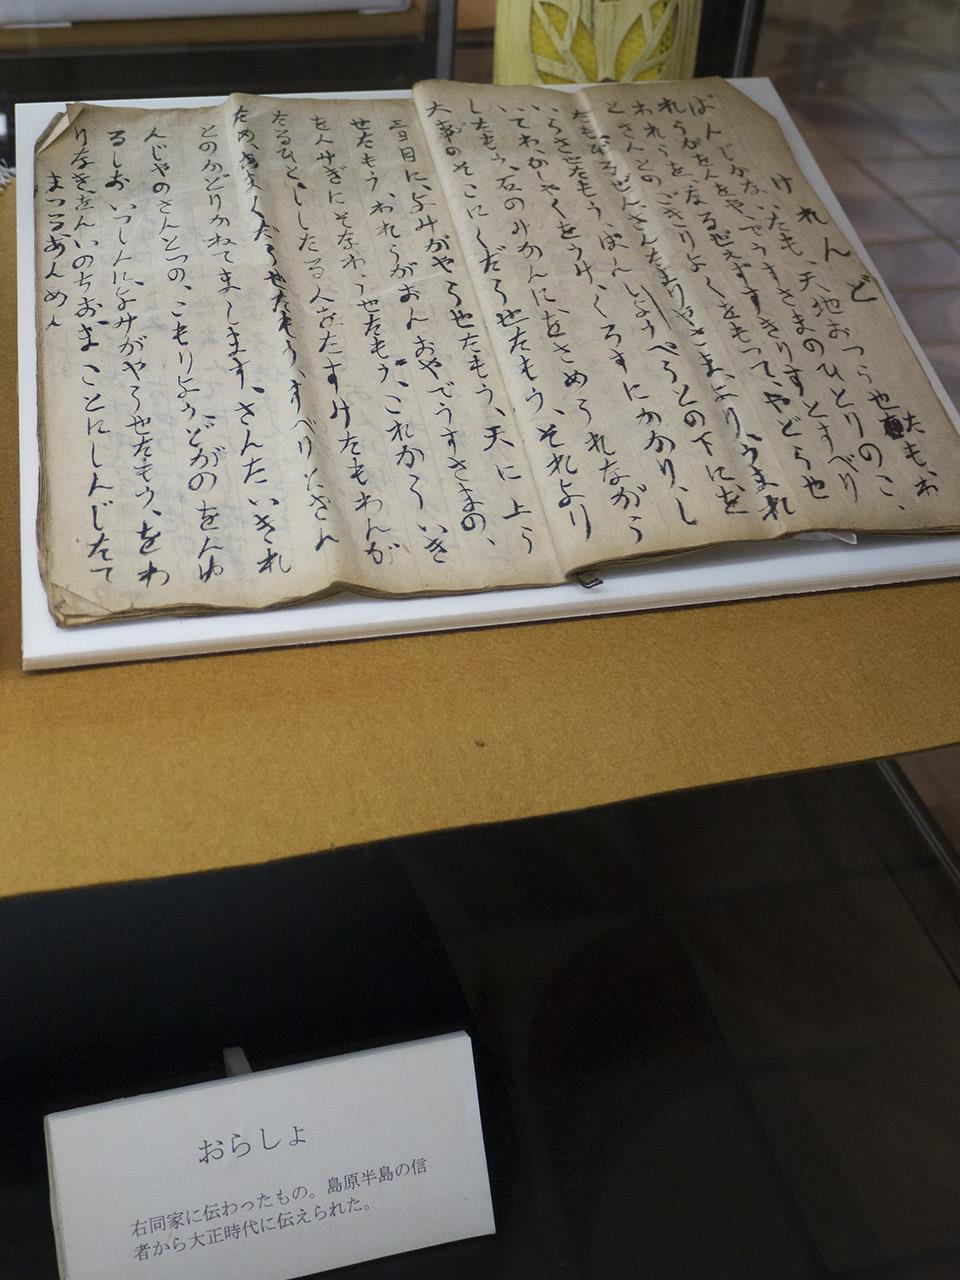 けれんど
ばんじかない、たも、天地おつうせ
たも、わ
れうがをん、をや、でうすさまのひとりのこ、
われうを、なるぜえずすきりすとすべり
と、さんとのごきりよくをもつて、やどらせ
たもびるぜんさんたまりやさまより、うまれ
いうさせたもう、ぽんしようべうとの下にを
いてわかしやくをうけ、くろすにかかり、し
したもう、石のみかんにをさめうれながう
大事のそこにくだらせたもう、それより
三日目に、よみがやらせたもう、天に上う
せたもう、われうがおんおやでうすさまの、
をんみぎにそなわうせたもう、これかういき
たるひと、ししたる人をたすけたもわんが
ため、あまくだらせたもう、すべりとさん
とのかどりかねてましします、さんたいきれ
んじやのさんとつの、こもりようどがのをんゆ
るしお、いつしんに、よみがやらせたもう、をわ
りなきをんいのちおまことにしんじたて
まつるあんめん
おらしょ
右同家に伝わったもの。島原半島の信
者から大正時代に伝えられた。